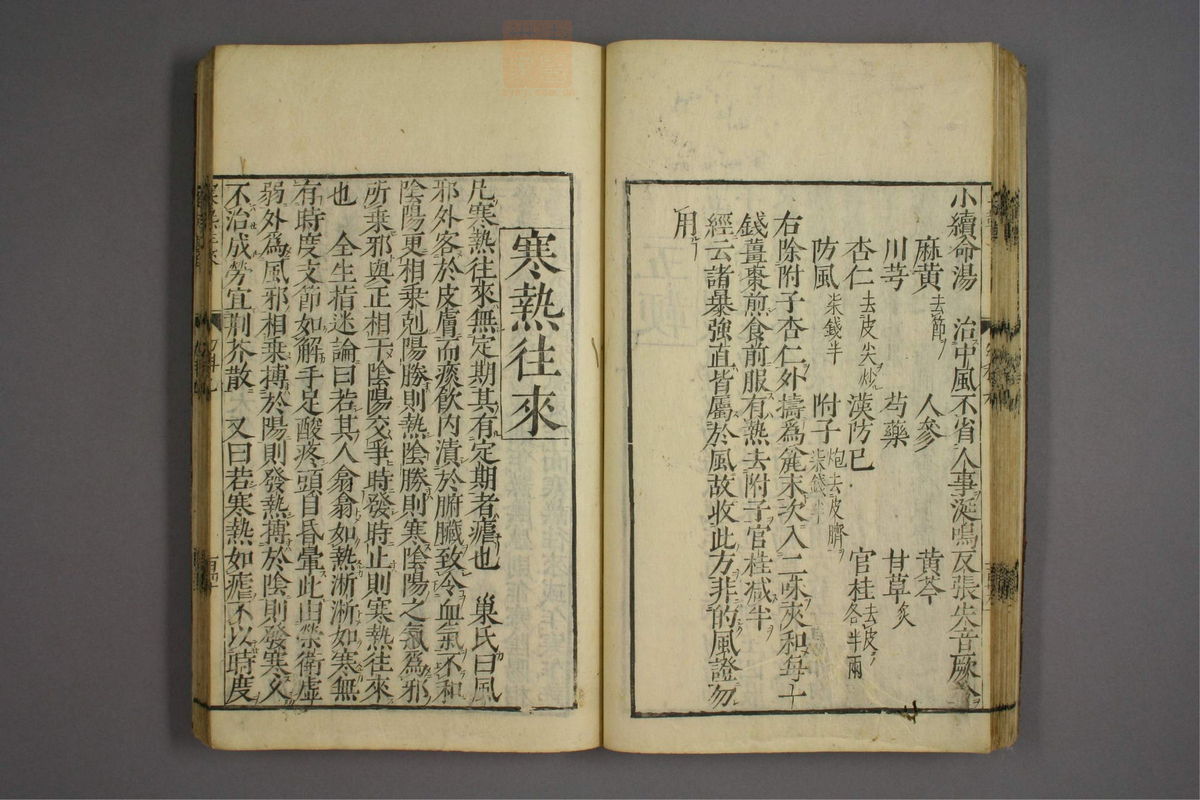 小續命湯　治中風不省人事涎鳴反張失音厥冷
麻黃去節　人參　黃芩
川芎　芍藥　甘草炙
杏仁去皮尖炒　漢防巳　官桂去皮各半兩
防風柒錢半　附子炮去皮臍柒錢半
右除附子杏仁外擣為麄末次入二味夾和每十
錢薑棗煎食前服有熱去附子官桂減半
經云諸暴強直皆屬於風故收此方非的風證勿
用
寒熱往來
凡寒熱往來無定期其有定期者瘧也　巢氏曰風
邪外客於皮膚而痰飲內漬於腑臟致令血氣不和
陰陽更相乗剋陽勝則熱陰勝則寒陰陽之氣為邪
所乗邪與正相干陰陽交爭時發時止則寒熱往來
也　全生指迷論曰若其人翕翕如熱淅淅如寒無
有時度支節如解手足酸疼頭目昏暈此由榮衛虛
弱外為風邪相乗搏於陽則發熱搏於陰則發寒又
不治成勞宜荆芥散　又曰若寒熱如瘧不以時度